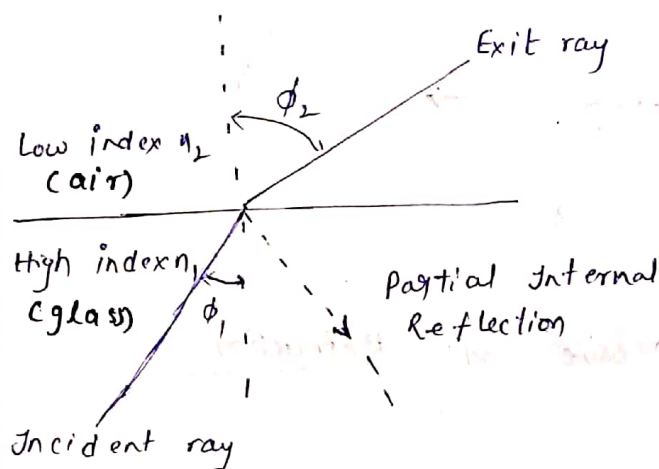 Exit ray
ϕ2
Low index η2
(air)
High index η1
(glass)
ϕ1
Partial Internal
Reflection
Incident ray